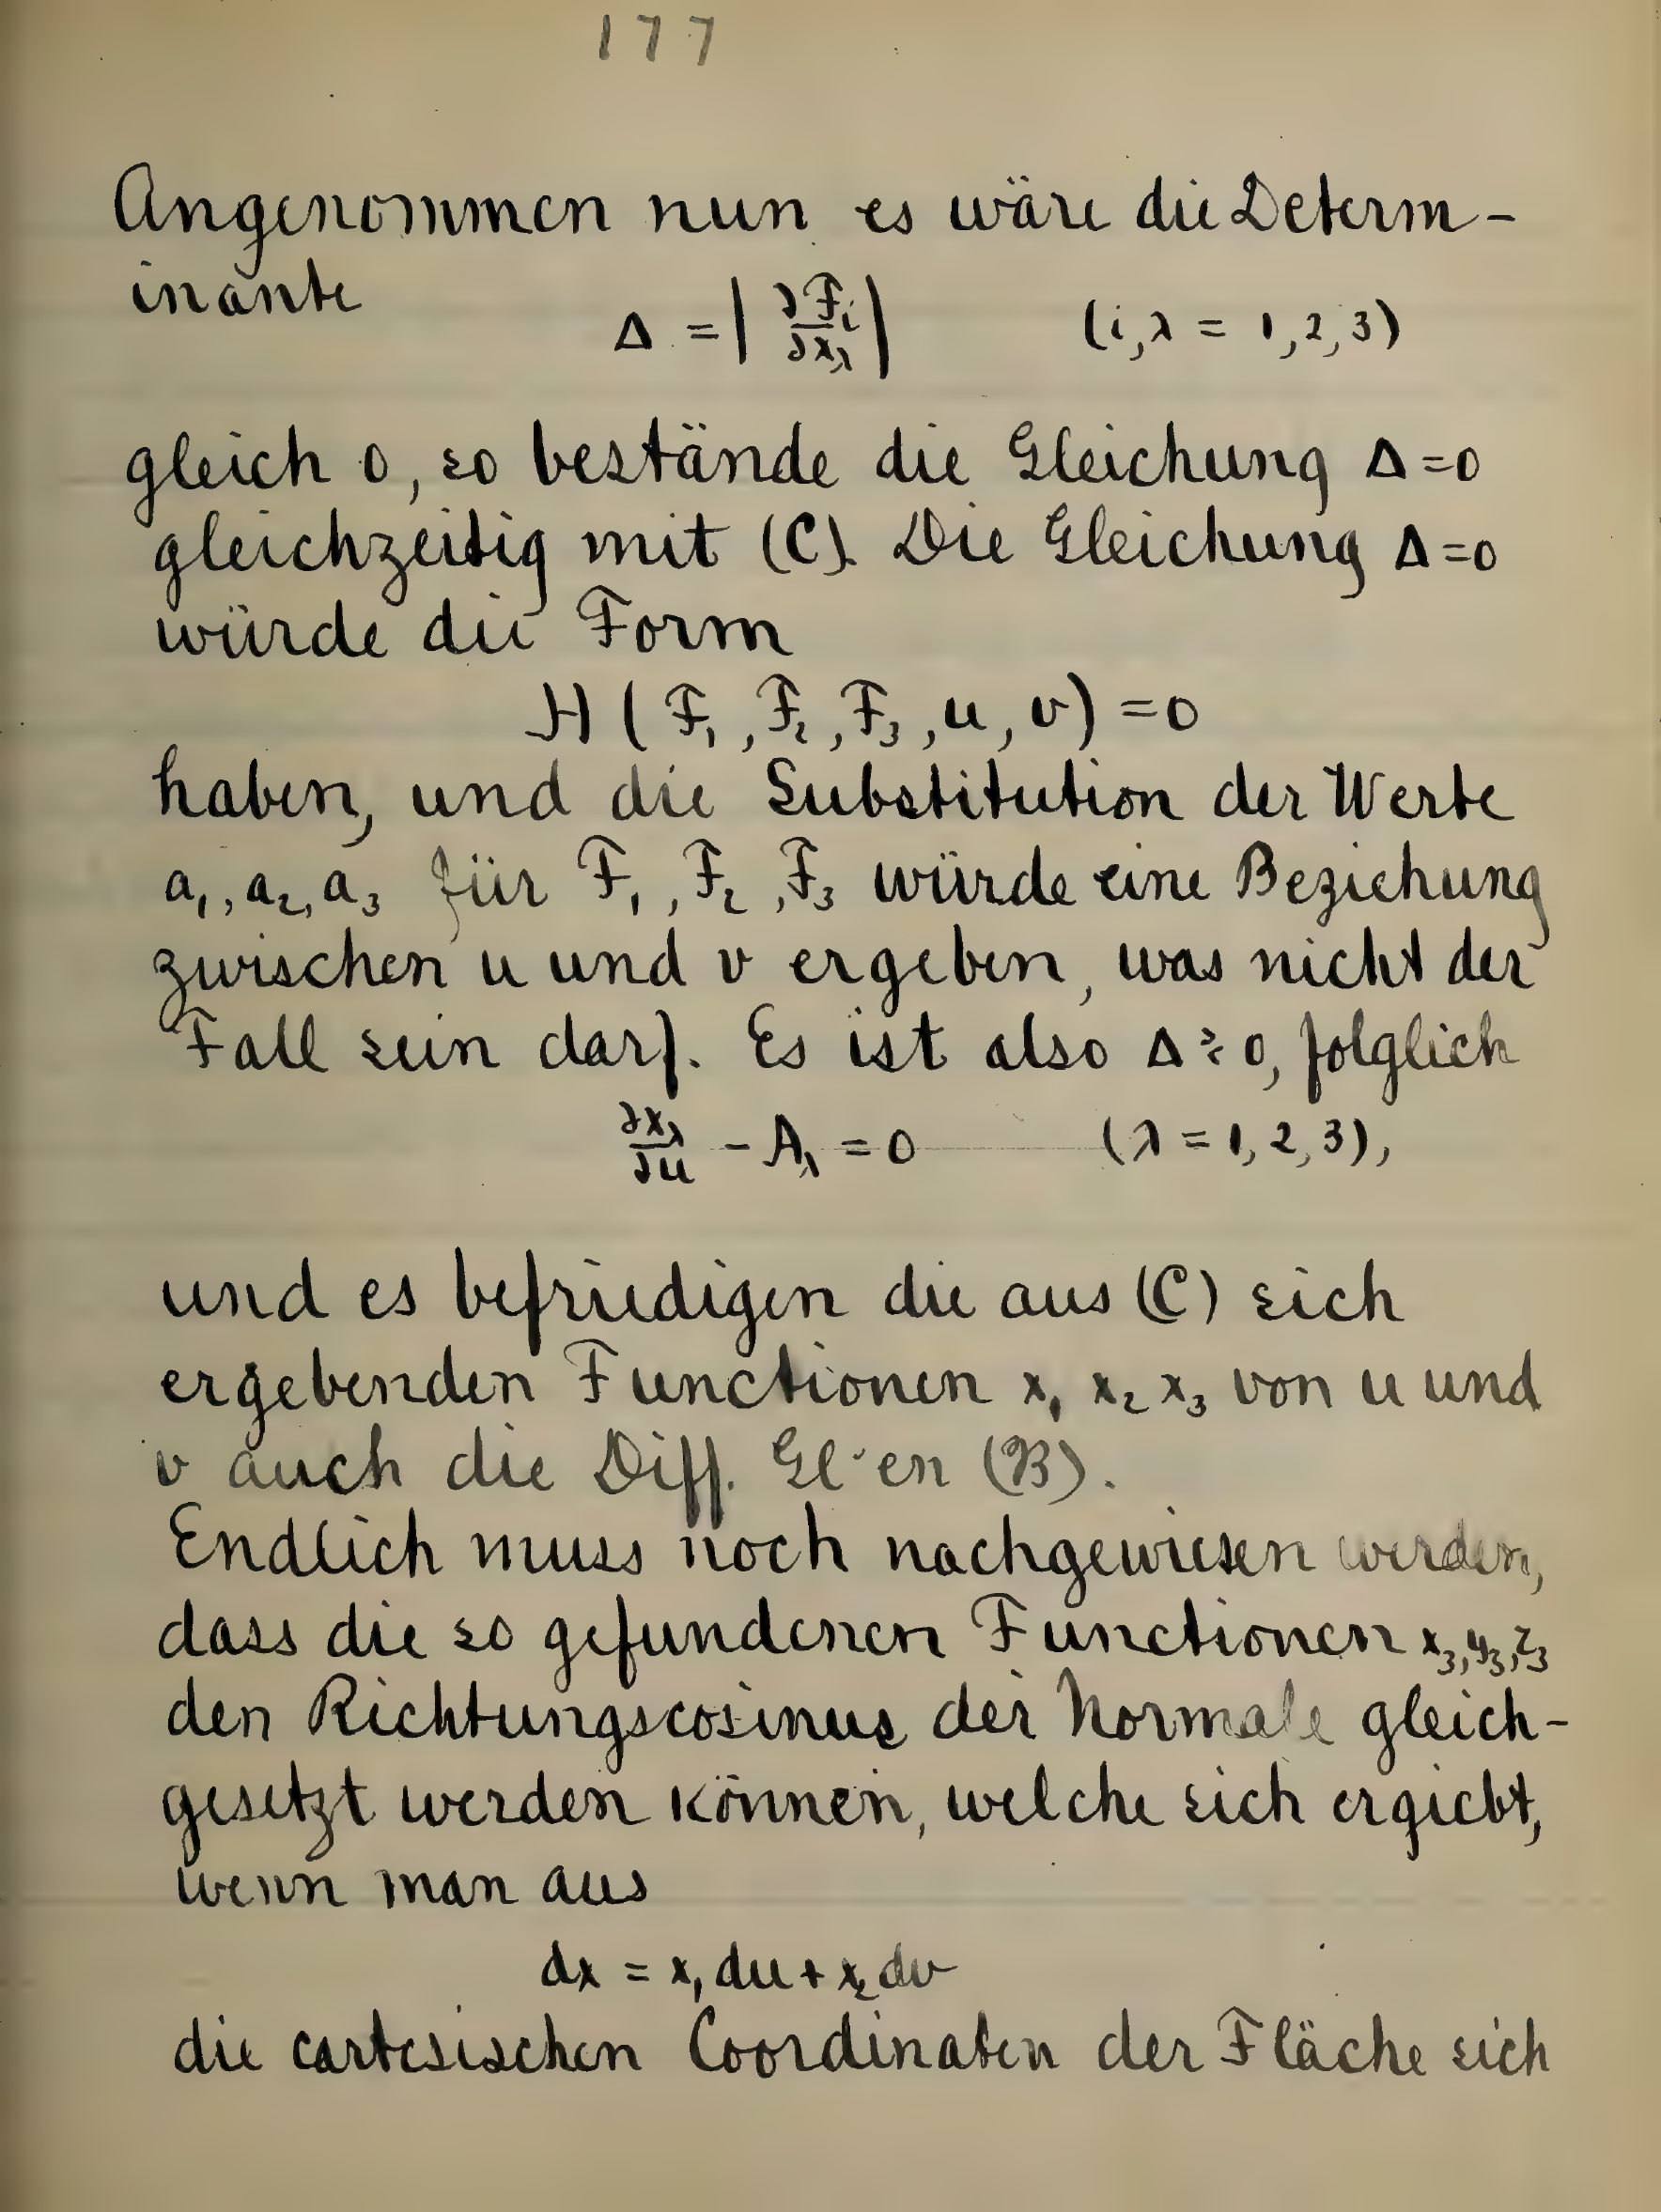 177
Angenommen nun es wäre die Determ-
inante
Δ = | ∂F_i / ∂x_λ | (i, λ = 1, 2, 3)
gleich 0, so bestände die Gleichung Δ = 0
gleichzeitig mit (C). Die Gleichung Δ = 0
würde die Form
H ( F₁ , F₂ , F₃ , u , v ) = 0
haben, und die Substitution der Werte
a₁, a₂, a₃ für F₁ , F₂ , F₃ würde eine Beziehung
zwischen u und v ergeben, was nicht der
Fall sein darf. Es ist also Δ ≷ 0, folglich
∂x_λ / ∂u - A_λ = 0 (λ = 1, 2, 3),
und es befriedigen die aus (C) sich
ergebenden Functionen x₁ x₂ x₃ von u und
v auch die Diff. Gl'en (B).
Endlich muss noch nachgewiesen werden,
dass die so gefundenen Functionen x₃, y₃, z₃
den Richtungscosinus der Normale gleich-
gesetzt werden können, welche sich ergiebt,
wenn man aus
dx = x₁ du + x₂ dv
die cartesischen Coordinaten der Fläche sich